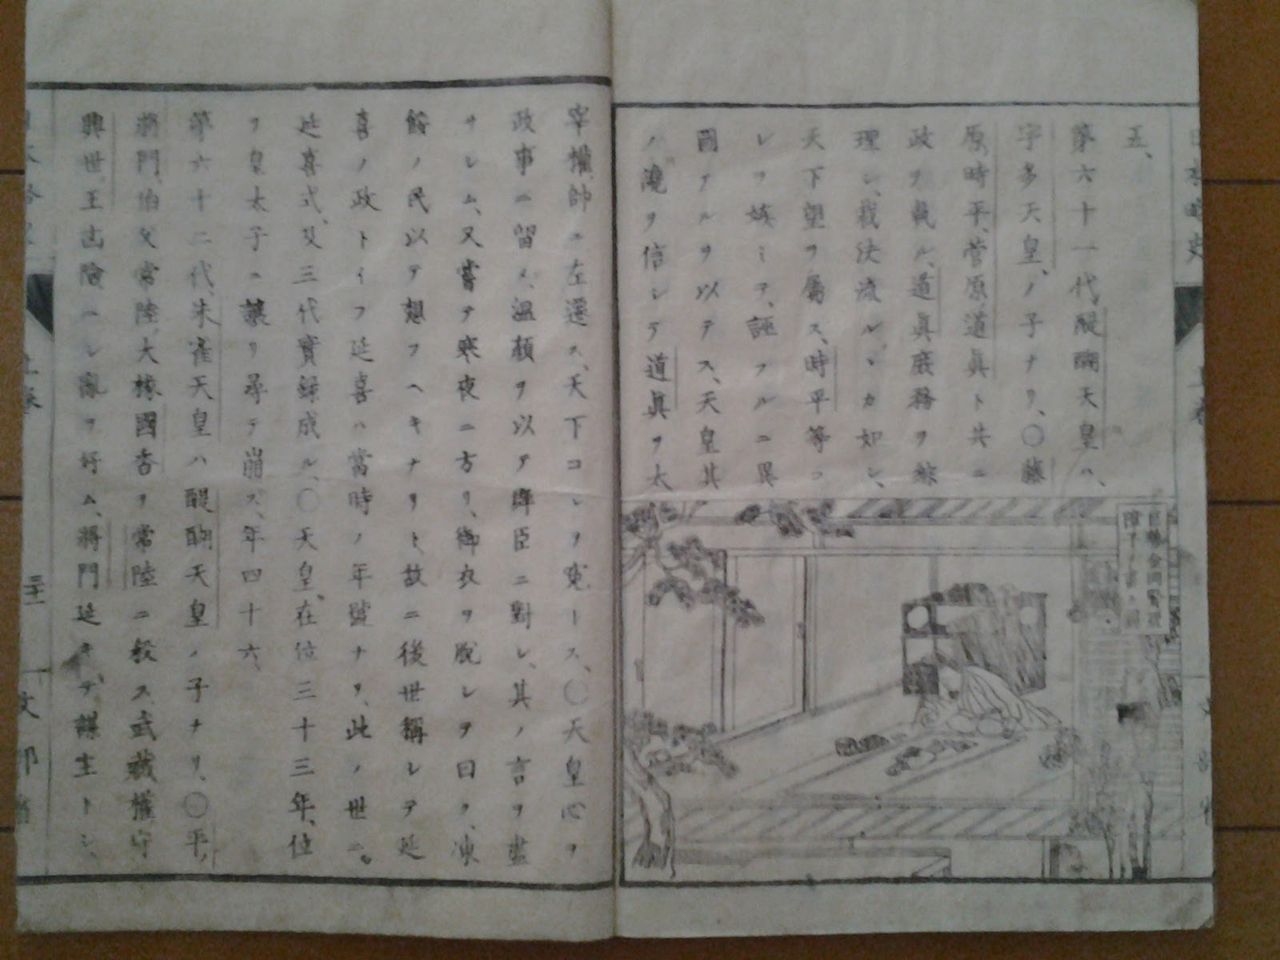 日本略史
上巻
五、
第六十一代、醍醐天皇ハ、
宇多天皇、ノ子ナリ、〇藤
原、時平、菅原、道眞ト共ニ
政ヲ執ル、道眞庶務ヲ綜
理シ、裁決流ルヽカ如シ、
天下望ヲ屬ス、時平等コ
レヲ嫉ミテ、誣フルニ異
圖アルヲ以テス、天皇其
ノ讒ヲ信シテ道眞ヲ太
宰權帥ニ左遷ス、天下コレヲ寃トス、〇天皇心ヲ
政事ニ留メ、溫顏ヲ以テ群臣ニ對シ、其ノ言ヲ盡
サシム、又嘗テ寒夜ニ方リ、御衣ヲ脱シテ曰ク、凍
餒ノ民以テ想フヘキナリト、故ニ後世稱シテ延
喜ノ政トイフ延喜ハ當時ノ年號ナリ、此ノ世ニ、
延喜式、及三代實録成ル、〇天皇、在位三十三年、位
ヲ皇太子ニ讓リ尋テ崩ス、年四十六、
第六十二代、朱雀天皇ハ醍醐天皇ノ子ナリ、〇平、
將門、伯父常陸、大掾國香ヲ常陸ニ殺ス、武藏權守
興世王凶險ニシ亂ヲ好ム、將門延キテ、謀主トシ、
日本略史
上巻
文部省